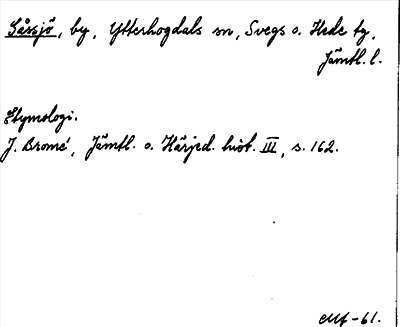 Såssjö, by, Ytterhogdals sn, Svegs o. Hede tg,
Jämtl. l.
Etymologi.
J. Bromé, Jämtl. o. Härjed. hist. III, s. 162.
-61.